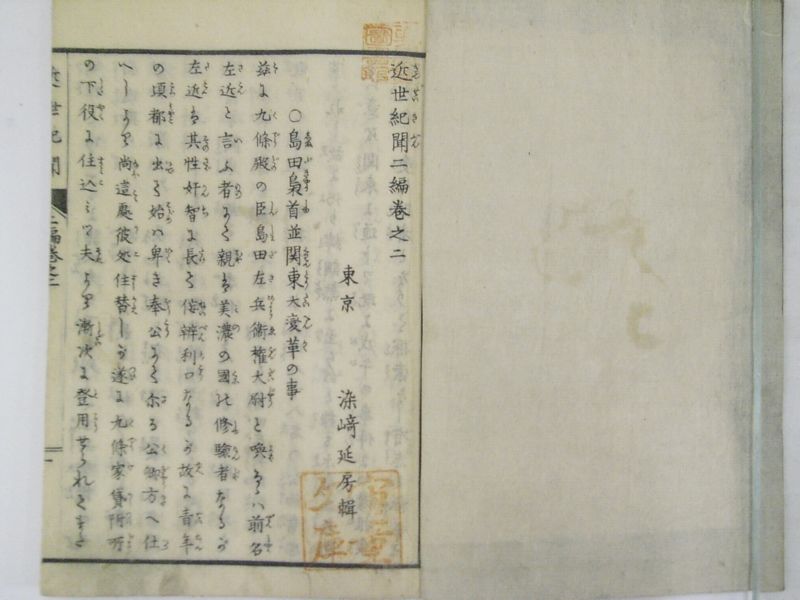 近世紀聞二編巻之二
東京 染﨑延房輯
〇島田梟首並関東大変革の事
茲に九條殿の臣島田左兵衛権大尉と喚るゝハ前名
左近と言ふ者にて親ハ美濃の國の修験者なるが
左近ハ其性奸智に長て侫辨利口なるが故に青年
の頃都に出て始ハ卑き奉公にて尓る公卿方へ仕
へしより尚這處彼処住替しが遂に九條家貸附所
の下役に住込ミて夫より漸次に登用せられて
近世紀聞
二編巻之二